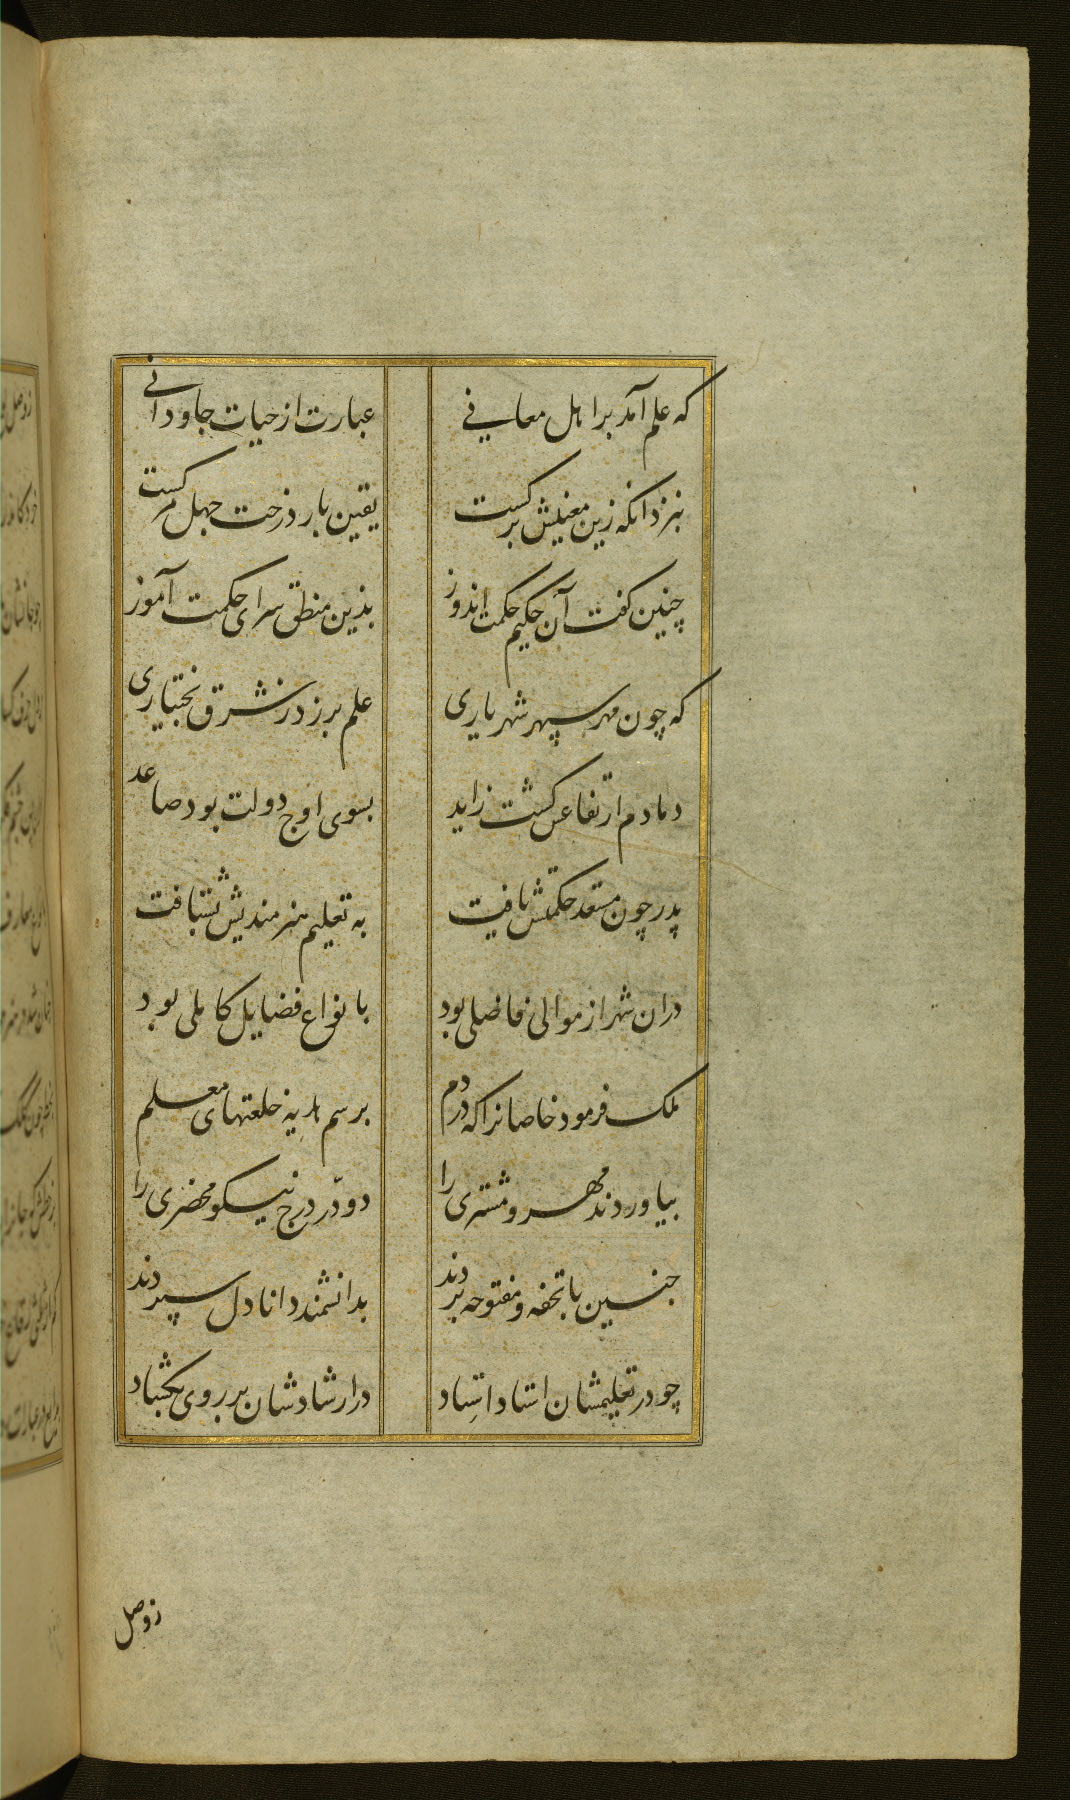 که علم آمد بر اهل معانی عبارت از حیات جاودانی
بنزد آنکه زین معنیش برکست یقین بار درخت جهل مرکست
چنین کفت آن حکیم حکمت اندوز بذین منطق سرای حکمت آموز
که چون مهر سپهر شهریاری علم برزد ز شرق بختیاری
دمادم ارتفاعش کشت زاید بسوی اوج دولت بود صاعد
پدر چون مستعد حکمتش یافت به تعلیم هنرمندیش بشتافت
دران شهر از موالی فاضلی بود بانواع فضایل کاملی بود
ملک فرمود خاصانرا که دردم برسم هدیه خلعتهای معلم
بیاوردند مهر و مشتری را دو در درج نیکو محضری را
جنسین با تحفه و مفتوحه بردند بدانشمند دانا دل سپردند
چو در تعلیمشان استاد استاد در ارشادشان بر روی بکشاد
زوصل